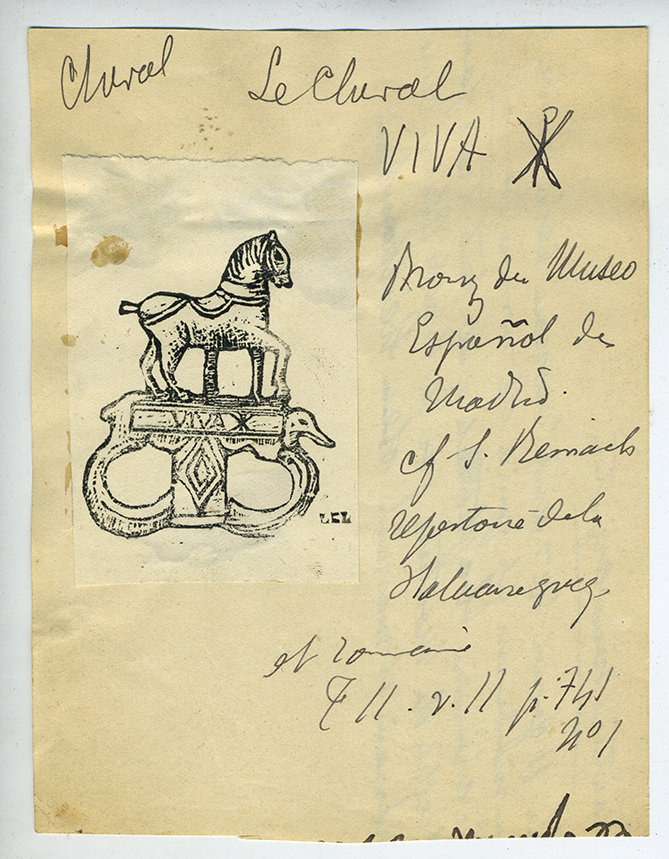 Cheval
Le Cheval
VIVA ☧
VIVA ☧
LCL
Bronze du Museo
Español de
Madrid.
cf S. Reinach
répertoire de la
Statuaire grecq
et romaine
T II. v. II p. 741
nº 1